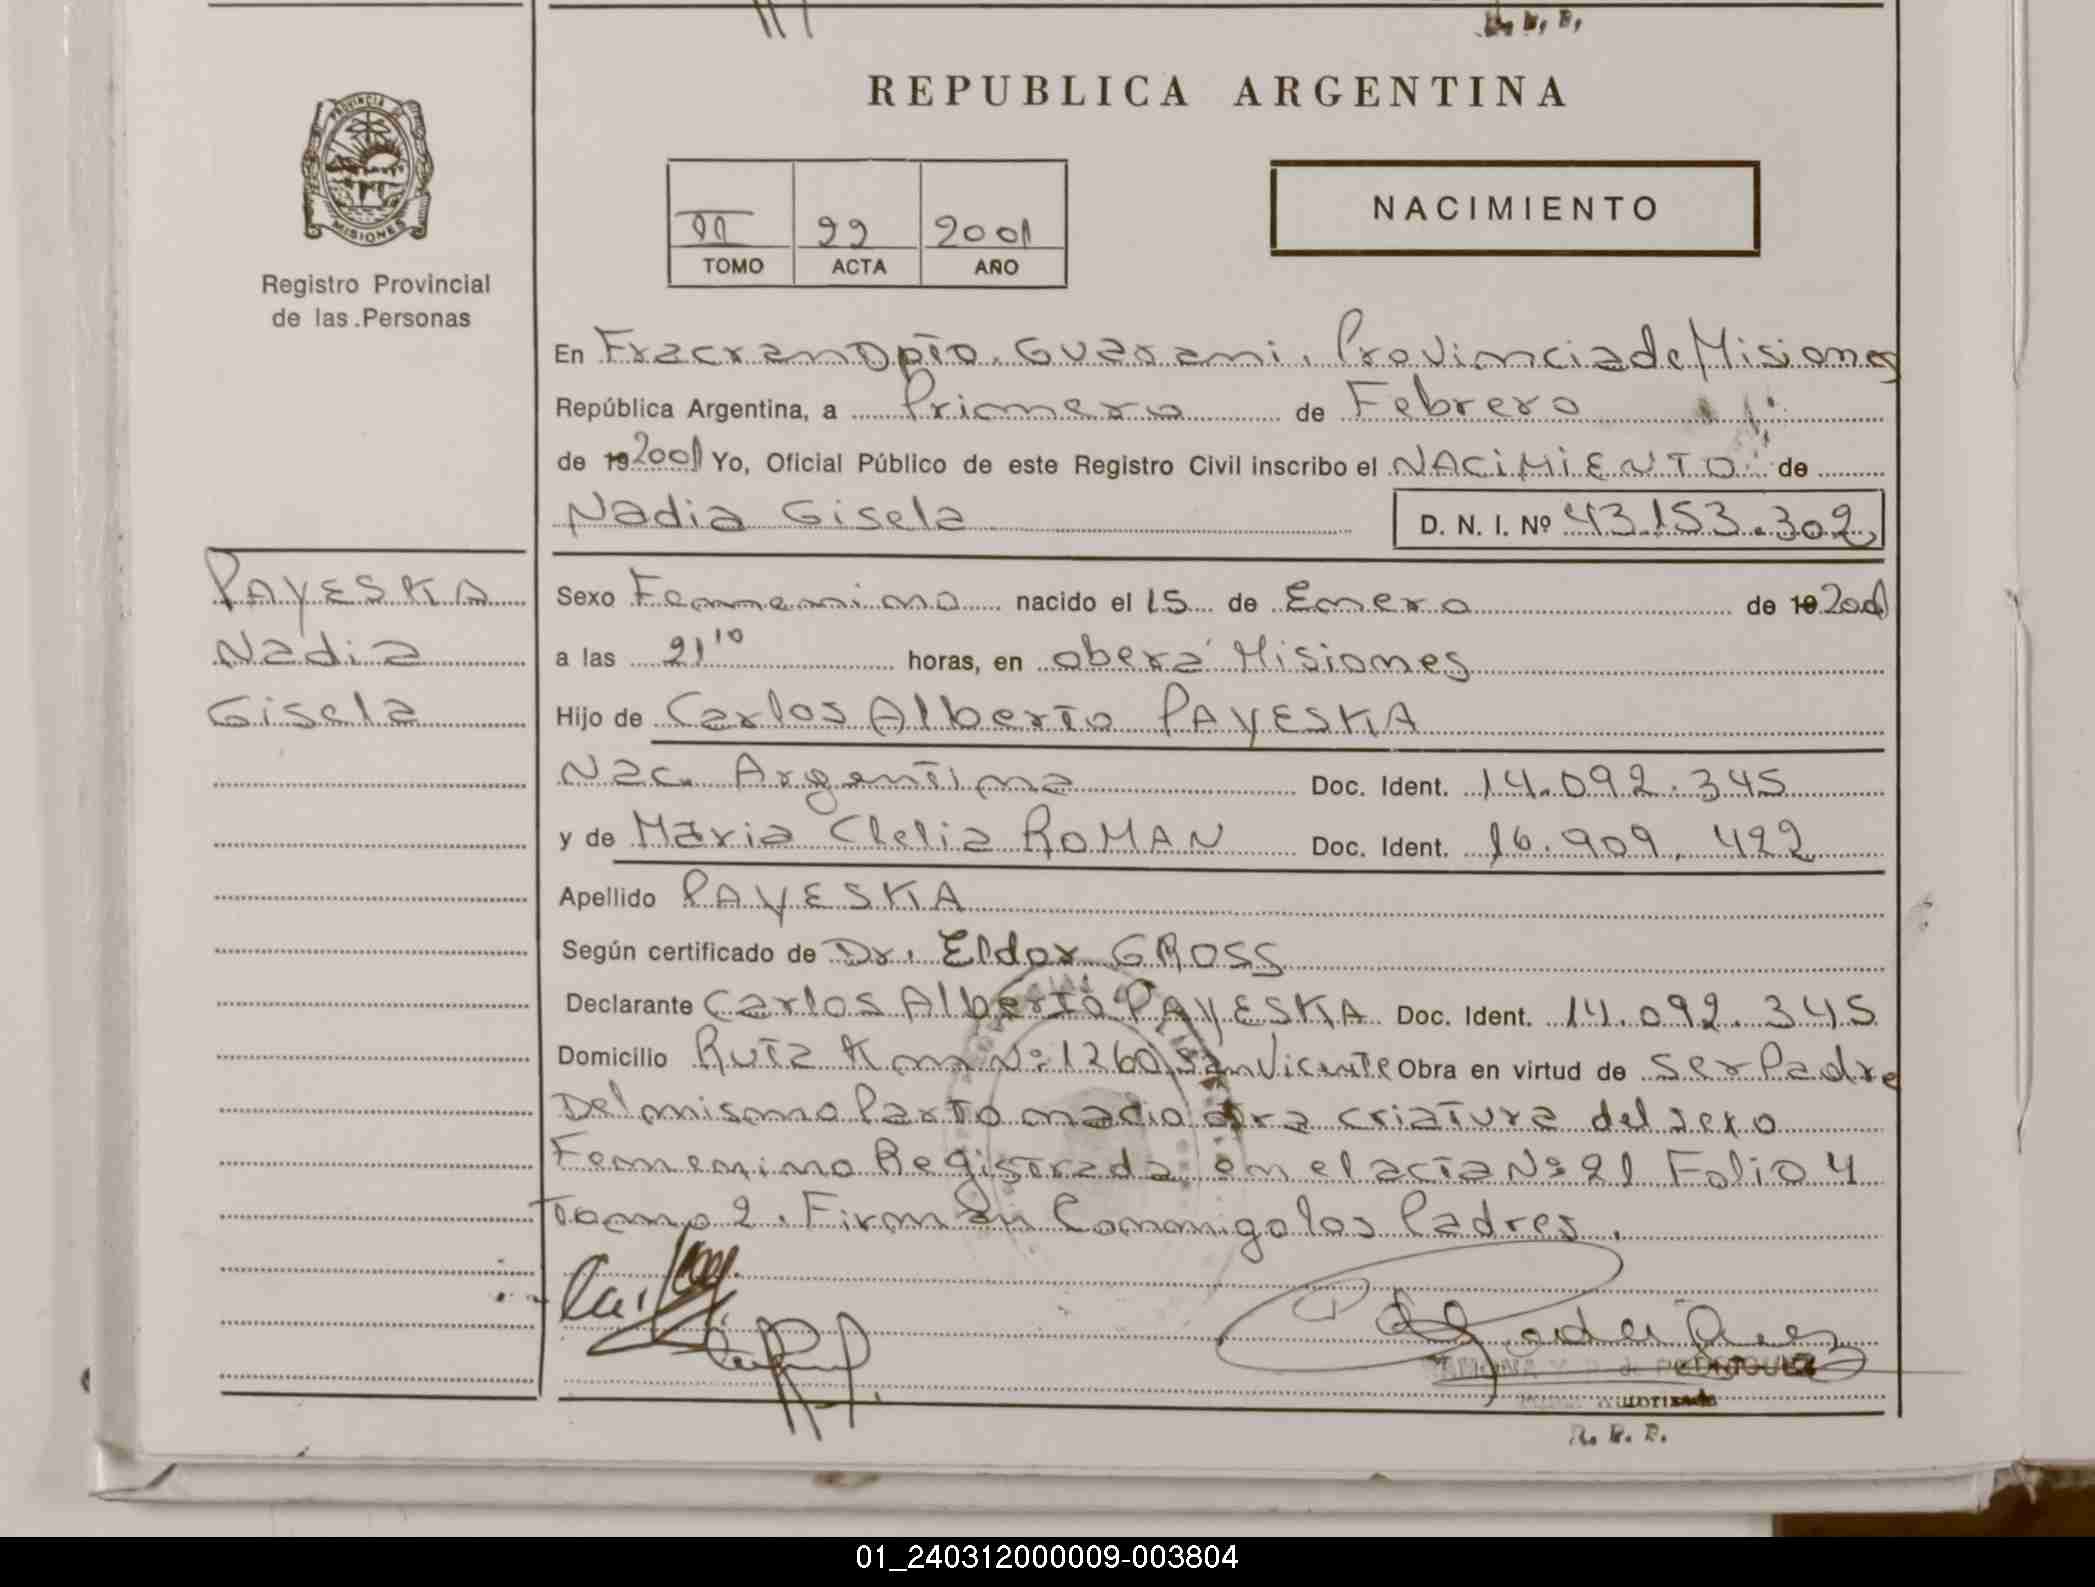 R. R. P.
REPUBLICA ARGENTINA
PROVINCIA DE
MISIONES
Registro Provincial
de las Personas
II 22 2001
TOMO ACTA AÑO
NACIMIENTO
En Fracran Dpto. Guarani. Provincia de Misiones
República Argentina, a Primero de Febrero
de 19 2001 Yo, Oficial Público de este Registro Civil inscribo el NACIMIENTO de
Nadia Gisela D. N. I. Nº 43.153.302
PAYESKA
Nadia
Gisela
Sexo Femenino nacido el 15 de Enero de 19 2001
a las 21 10 horas, en obera Misiones
Hijo de Carlos Alberto PAYESKA
Nac. Argentina Doc. Ident. 14.092.345
y de Maria Clelia ROMAN Doc. Ident. 16.909.422
Apellido PAYESKA
Según certificado de Dr. Eldor GROSS
Declarante Carlos Alberto PAYESKA Doc. Ident. 14.092.345
Domicilio Ruta Km Nº 1260 San Vicente Obra en virtud de ser Padre
Del mismo Parto nacio otra criatura del sexo
Femenino Registrada en el acta Nº 21 Folio 4
Tomo 2. Firman Conmigo los Padres.
RAMONA Y. R. de RODRIGUEZ
Autorizada
R. R. P.
01_240312000009-003804